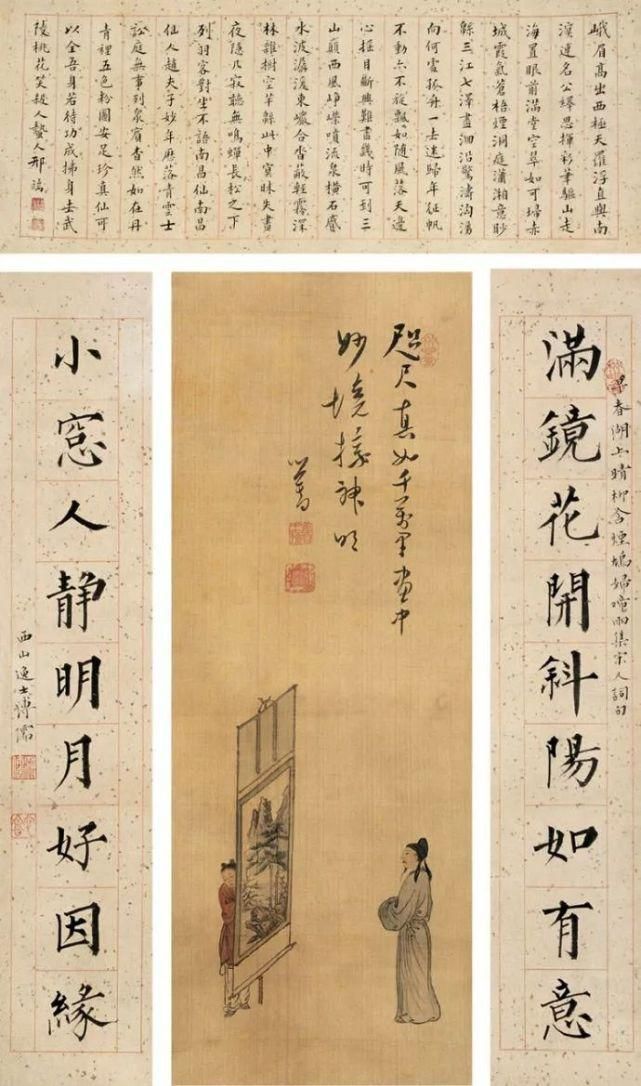 峨眉高出西極天羅浮直與南
溟連名公繹思揮彩筆驅山走
海置眼前滿堂空翠如可掃赤
城霞氣蒼梧烟洞庭瀟湘意眇
緜三江七澤盡洄沿驚濤洶湧
向何處孤舟一去迷歸年征帆
不動亦不旋飄如隨風落天邊
心搖目斷興難盡幾時可到三
山巔西風崢嶸噴流泉橫石蹙
水波潺湲東崖合沓蔽輕霧深
林雜樹空芊緜此中冥昧失晝
夜隱几寂聽無鳴蟬長松之下
列羽客對坐不語南昌仙南昌
仙人趙夫子妙年歷落青雲士
訟庭無事列衆賓杳然如在丹
青裡五色粉圖安足珍真仙可
以全吾身若待功成拂身去武
陵桃花笑殺人蟄人邢端
早春湖上晴柳含煙鳩婦喧雨集宋人詞句
滿鏡花開斜陽如有意
咫尺真如千萬里畫中
妙境接神明
心畬
小窓人靜明月好因緣
西山逸士溥儒